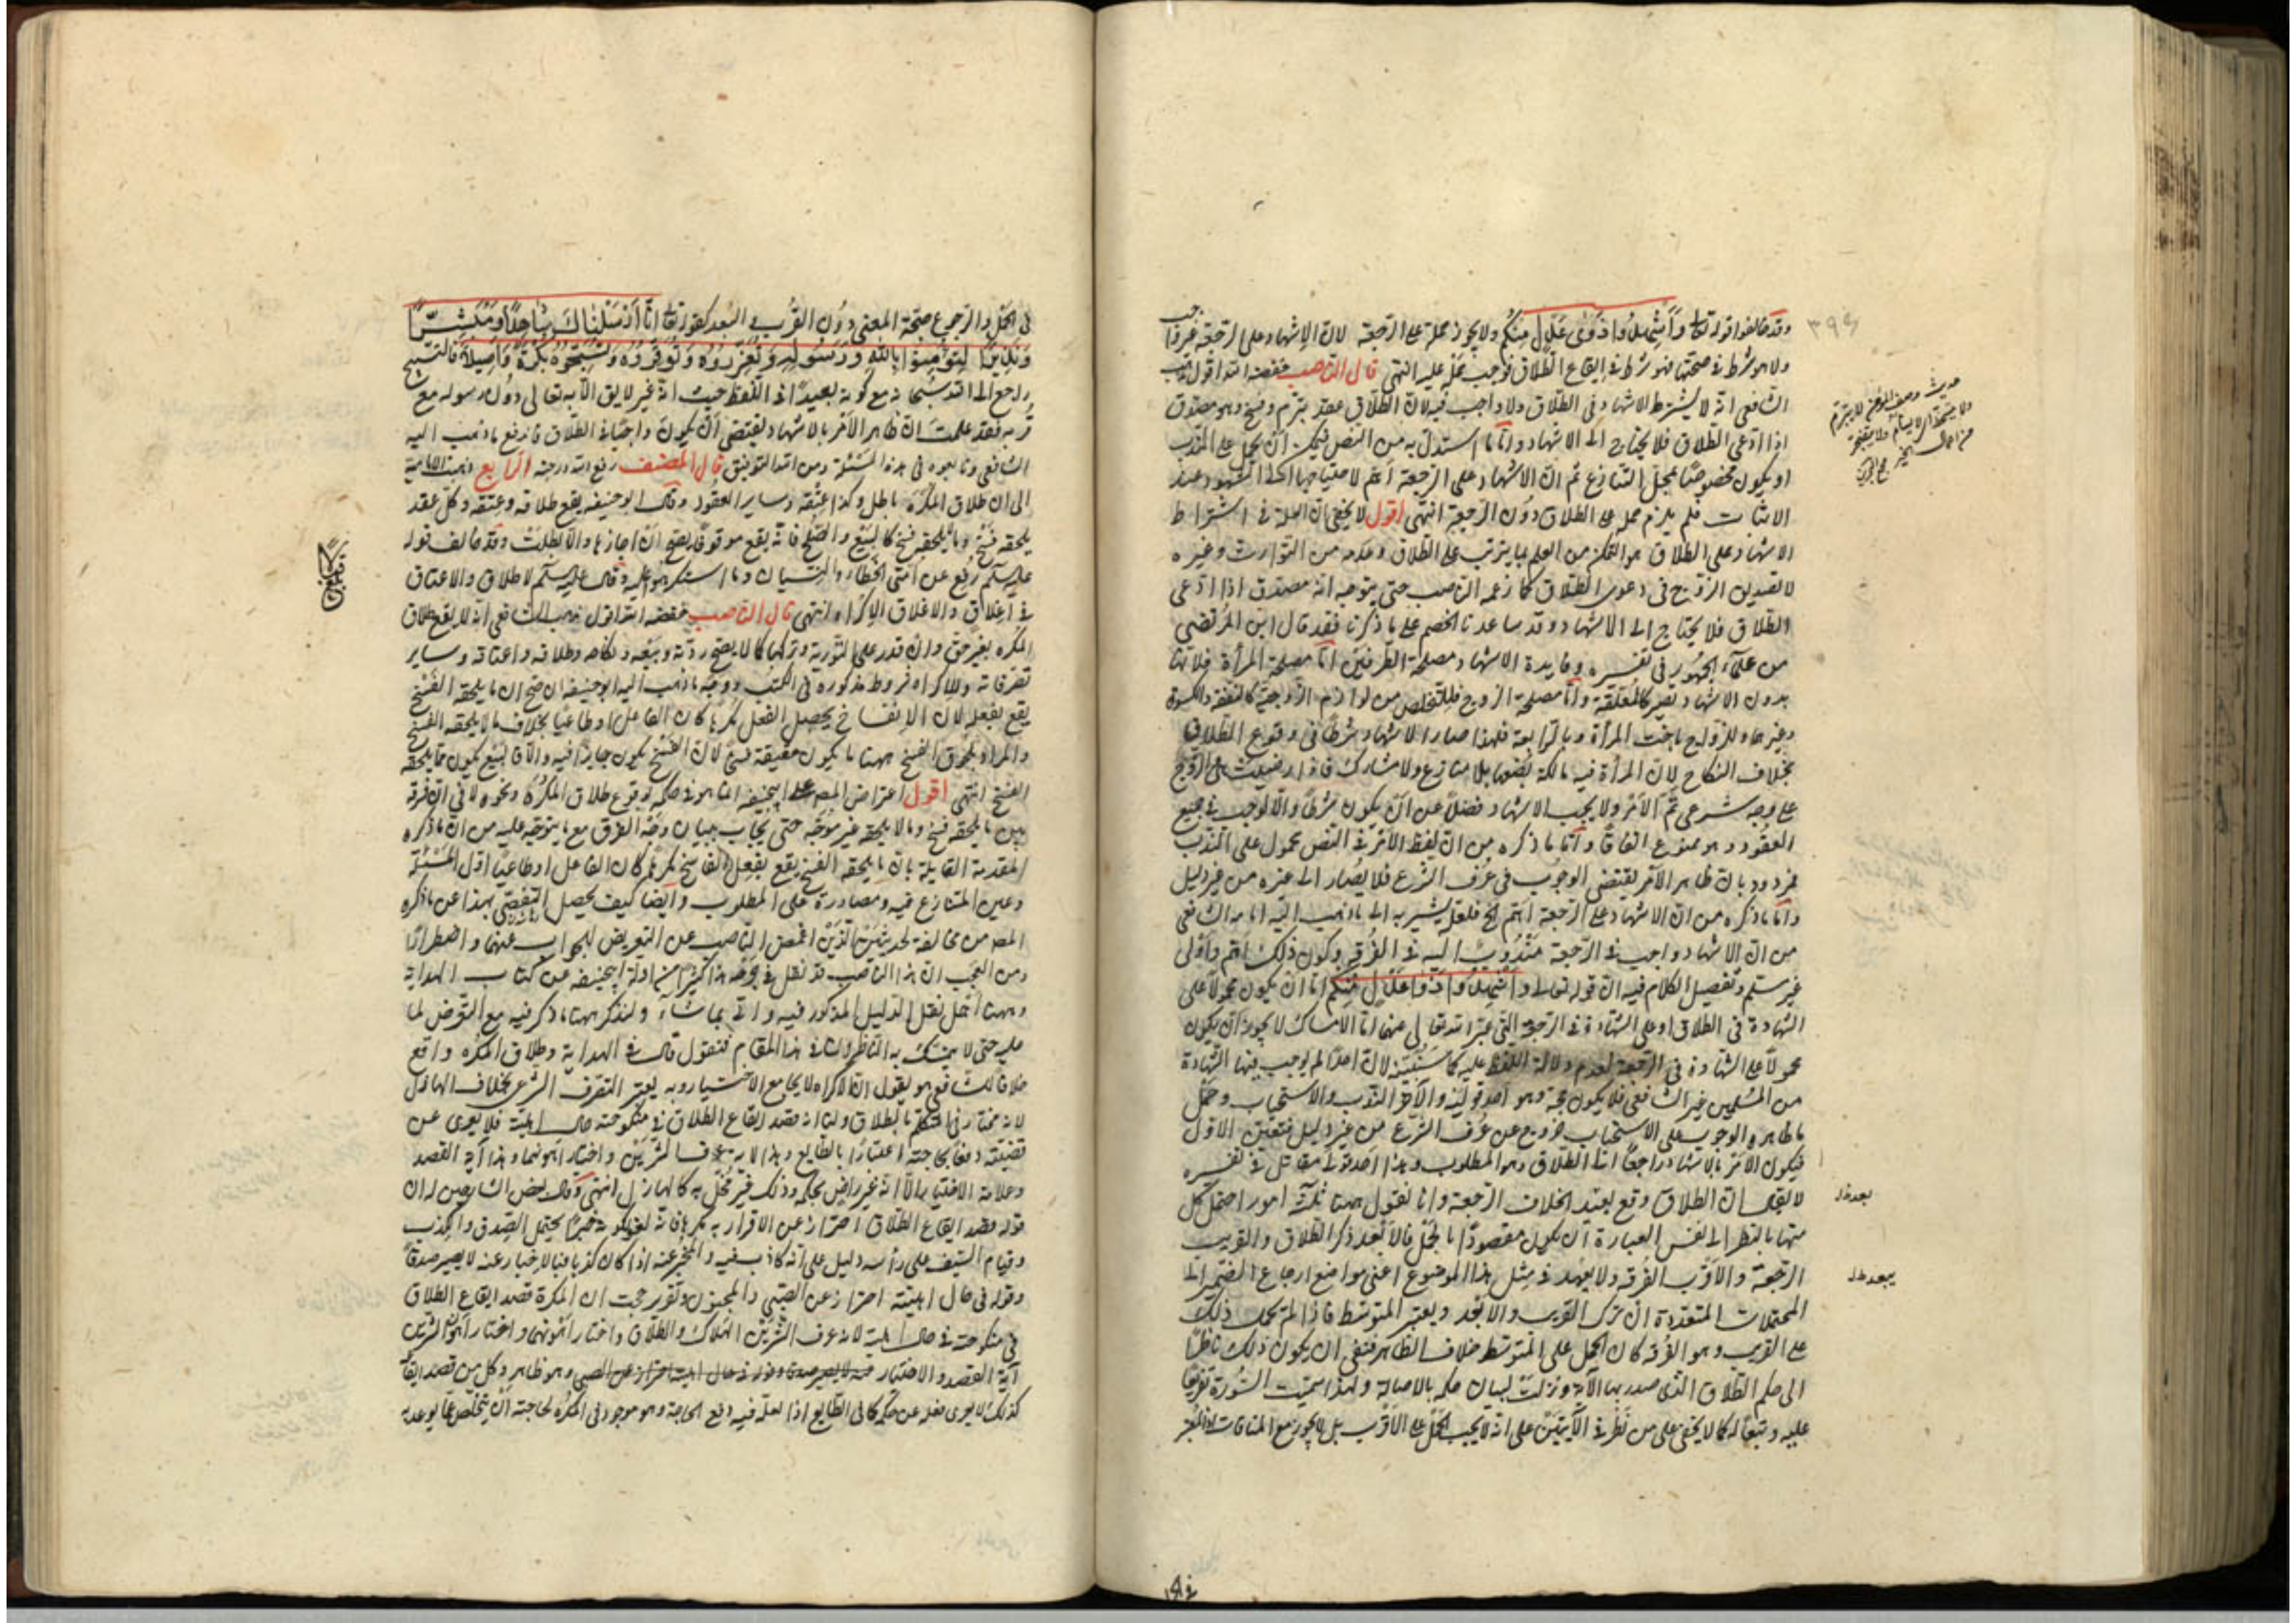 وقد خالفوا قوله تعالى وَأَشْهِدُوا ذَوَىْ عَدْلٍ مِنْكُم ولا يجوز حمله على الرجعة لان الاشهاد على الرجعة غير واجب
ولا هو شرط في صحتها فهو شرط في ايقاع الطلاق فوجب حمله عليه انتهى قال الناصب خفضه الله اقول مذهب
الشافعي انه لا يشترط الاشهاد في الطلاق ولا واجب فيه لان الطلاق عقد يبرم وفسخ وهو مصدوق
اذا ادعى الطلاق فلا يحتاج الى الاشهاد واما ما استدل به من النص فيمكن ان يحمل على الندب
او يكون مخصوصا بمحل التنازع ثم ان الاشهاد على الرجعة اهم لاحتياجها الى الشهود عند
الاثبات فلم يلزم حمله على الطلاق دون الرجعة انتهى اقول لا يخفى ان العلة في اشتراط
الاشهاد على الطلاق هو التمكن من العلم بما يترتب على الطلاق وعدمه من التوارث وغيره
لا تصديق الزوج في دعوى الطلاق كما زعمه الناصب حتى يتوجه انه مصدق اذا ادعى
الطلاق فلا يحتاج الى الاشهاد وقد ساعدنا الخصم على ما ذكرنا فقد قال ابن المرتضى
من علماء الجمهور في تفسيره وفايدة الاشهاد مصلحة الطرفين اما مصلحة المرأة فلانها
بدون الاشهاد تصير كالمعلقة واما مصلحة الزوج فللتخلص من لوازم الزوجية كالنفقة والكسوة
وغيرهما وللزواج باخت المرأة وبالرابعة فلهذا صار الاشهاد شرطا في وقوع الطلاق
بخلاف النكاح لان المرأة فيه مالكة بضعها بلا منازع ولا مشارك فاذا رضيت على الزوج
على وجه شرعي تم الامر ولا يجب الاشهاد فضلا عن ان يكون شرطا والا لوجب في جميع
العقود وهو ممنوع اتفاقا واما ما ذكره من ان لفظ الامر في النص محمول على الندب
فمردود بان ظاهر الامر يقتضي الوجوب في عرف الشرع فلا يصار الى غيره من غير دليل
واما ما ذكره من ان الاشهاد على الرجعة اهم الخ فلعله يشير به الى ما ذهب اليه امامه الشافعي
من ان الاشهاد واجب في الرجعة مندوب اليه في الفرقة وكون ذلك اهم واولى
غير مسلم وتفصيل الكلام فيه ان قوله تعالى وَأَشْهِدُوا ذَوَا عَدْلٍ مِنْكُم اما ان يكون محمولا على
الشهادة في الطلاق او على الشهادة في الرجعة التي عبر الله تعالى عنها اما الامساك لا يجوز ان يكون
محمولا على الشهادة في الرجعة لعدم دلالة اللفظ عليه كما سنبينه لان احدا لم يوجب فيها الشهادة
من المسلمين غير الشافعي فلا يكون حجة وهو احد قوليه والآخر الندب والاستحباب وحمل
ما ظاهره الوجوب على الاستحباب خروج عن عرف الشرع من غير دليل فتعين الاول
فيكون الامر بالاشهاد راجعا الى الطلاق وهو المطلوب وهذا احد قولي مقاتل في تفسيره
لا يقال ان الطلاق وقع بعد اختلاف الرجعة وانا نقول ههنا ثلثة امور احتمل كل
منها بالنظر الى نفس العبارة ان يكون مقصودا بالحمل فالابعد ذكر الطلاق والقريب
الرجعة والاقرب الفرقة ولا يعهد في مثل هذا الموضوع اعني مواضع ارجاع الضمير الى
المحتملات المتعددة ان يترك القريب والابعد ويعتبر المتوسط فاذا لم تحمل ذلك
على القريب وهو الفرقة كان الحمل على المتوسط خلاف الظاهر فبقي ان يكون ذلك ناظرا
الى حكم الطلاق الذي صدر بها الآية ونزلت لبيان حكمه بالاصالة ولهذا سميت السورة
عليه وتبعا له كما لا يخفى على من نظر في الآيتين على انه لا يجب الحمل على الاقرب بل لا يجوز مع المنافات
۳۹۶
بعد ذل
في الحمل والترجيح صحة المعنى دون القرب والبعد كقوله تعالى انا أرسلناك شاهدا ومبشرا
ونذيرا لتؤمنوا بالله ورسوله وتعزروه وتوقروه وتسبحوه بكرة وأصيلا فالتسبيح
راجع الى الله سبحانه مع كونه بعيدا في اللفظ حيث انه غير لايق الا به تعالى دون رسوله مع
قربه فقد علمت ان ظاهر الامر بالاشهاد يقتضي ان يكون واجبا في الطلاق فاندفع ما ذهب اليه
الشافعي وتابعوه في هذه المسئلة ومن الله التوفيق قال المصنف رفع الله درجته الرابع ذهبت الامامية
الى ان طلاق المكره باطل وكذا عتقه وساير العقود وقال ابو حنيفه يقع طلاقه وعتقه وكل عقد
يلحقه فسخ وما يلحقه فسخ كالبيع والصلح فانه يقع موقوفا يصح ان اجازها والا بطلت وقد خالف قوله
عليه السلم رفع عن امتي الخطاء والنسيان وما استكرهوا عليه وقال عليه السلم لا طلاق ولا اعتاق
في اغلاق والاغلاق الاكراه انتهى قال الناصب خفضه الله اقول مذهب الشافعي انه لا يقع طلاق
المكره بغير حق وان قدر على التورية وتركها كما لا يصح ردته وبيعه ونكاحه وطلاقه واعتاقه وساير
تصرفاته وللاكراه شروط مذكوره في الكتب ووجه ما ذهب اليه ابو حنيفه ان صح ان ما يلحقه الفسخ
يقع بفعله لان الانفساخ يحصل الفعل مكرها كان الفاعل او طاعيا بخلاف ما لا يلحقه الفسخ
والمراد بلحوق الفسخ ههنا ما يكون حقيقة فسخ لان الفسخ يكون جايزا فيه والا فالبيع يكون مما يلحقه
الفسخ انتهى اقول اعتراض المصه على ابيحنيفه انما هو في حكمه بوقوع طلاق المكره ونحوه لا في ان فرقه
بين ما يلحقه فسخ وما لا يلحقه غير موجه حتى يجاب ببيان وجه الفرق مع ما يتوجه عليه من ان ما ذكره
المقدمة القايلة بان ما يلحقه الفسخ يقع بفعل الفاسخ مكرها كان الفاعل او طاعيا اول المسئلة
وعين المتنازع فيه ومصادرة على المطلوب وايضا كيف يحصل التفصي بهذا عن ما ذكره
المصه من مخالفة الحديثين الذين اغمض الناصب عن التعريض للجواب عنهما واضطرارا
ومن العجب ان هذا الناصب قد نقل في جرحه هذا كثيرا من ادلة ابيحنيفه عن كتاب الهداية
وههنا اهمل نقل الدليل المذكور فيه واتى بما شاء ولنذكر ههنا ما ذكر فيه مع التعرض لما
عليه حتى لا يتمسك به الناظر ثانيا في هذا المقام فنقول قال في الهداية وطلاق المكره واقع
خلافا للشافعي هو يقول ان الاكراه لا يجامع الاختيار وبه يعتبر التصرف الشرعي بخلاف الهازل
لانه مختار في التكلم بالطلاق ولنا انه قصد ايقاع الطلاق في منكوحته حال اهليته فلا يعرى عن
قضيته دفعا لحاجته اعتبارا بالطايع وهذا لانه عرف الشرين واختار اهونهما وهذا آية القصد
وعلامة الاختيار الا انه غير راض بحكمه وذلك غير مخل به كالهازل انتهى وقال بعض الشارحين له ان
قوله قصد ايقاع الطلاق احتراز عن الاقرار به مكرها فانه لغو لكونه خبرا يحتمل الصدق والكذب
وقيام السيف على رأسه دليل على انه كاذب فيه والمخبر عنه اذا كان كذبا فبالاخبار عنه لا يصير صدقا
وقوله في حال اهليته احتراز عن الصبي والمجنون وتقرير حجت ان المكرة قصد ايقاع الطلاق
في منكوحته في حال اهلية لانه عرف الشرين الهلاك والطلاق واختار اهونهما واختيار اهون الشرين
آية القصد والاختيار وهو ظاهر وكل من قصد ايقاع
كذلك لا يعرى فعله عن حكمه كما في الطايع اذ العلة فيه دفع الحاجة وهو موجود في المكره لحاجته ان يتخلص عما يوعد به